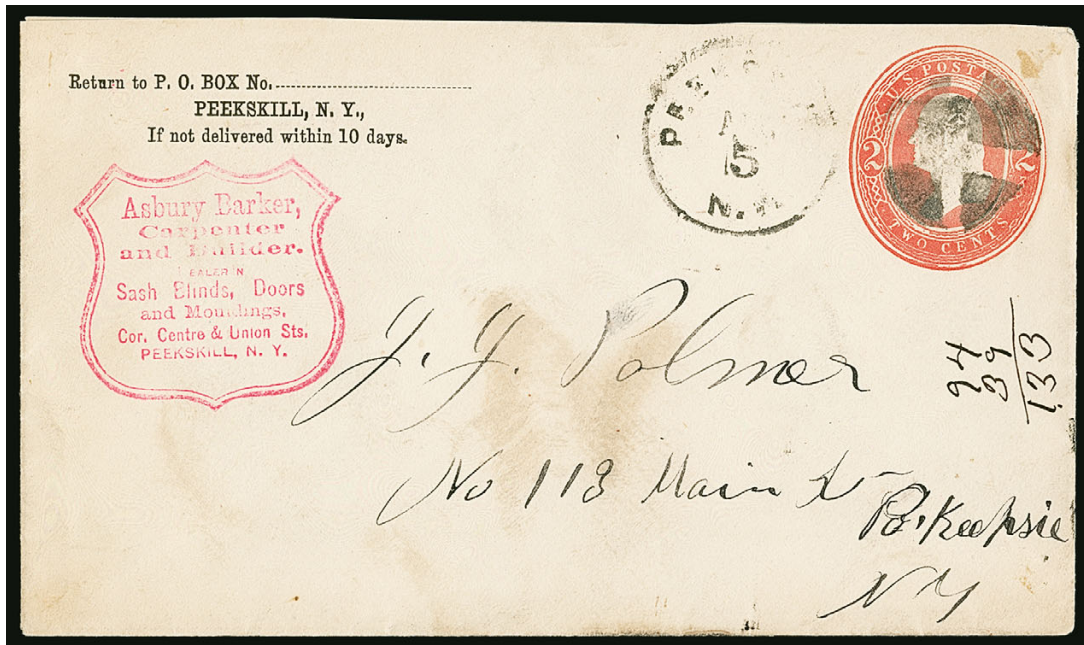 Return to P. O. BOX No.
PEEKSKILL, N. Y.,
If not delivered within 10 days.
Asbury Barker,
Carpenter
and Builder.
DEALER IN
Sash Blinds, Doors
and Mouldings,
Cor. Centre & Union Sts.
PEEKSKILL, N. Y.
PEEKSKILL
15
N.Y.
U.S. POSTAGE
2 2
TWO CENTS
J. J. Polmer
No 113 Main St
Po'Keepsie
N Y
94
39
133